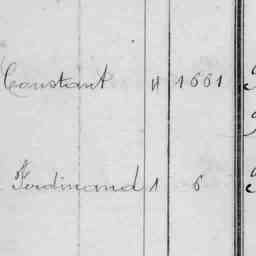 Constant 11 1661
Ferdinand 1 6